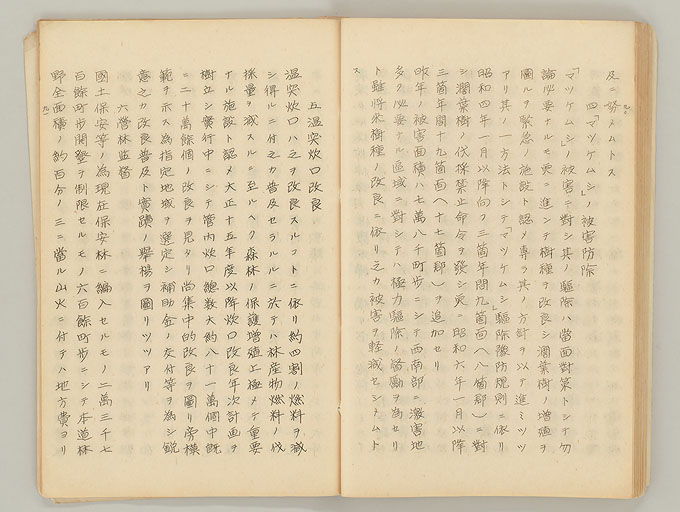 及ニ努メムトス
四「マツケムシ」ノ被害防除
「マツケムシ」ノ被害ニ對シ其ノ駆除ハ當面對策トシテ勿
論必要ナルモ更ニ進ンテ樹種ヲ改良シ濶葉樹ノ増殖ヲ
圖ルヲ緊急ノ施設ト認メ専ラ其ノ方計ヲ以テ進ミツツ
アリ其ノ一方法トシテ「マツケムシ」駆除豫防規則ニ依リ
昭和四年一月以降向フ三箇年間九箇面(八箇郡)ニ對
シ濶葉樹ノ伐採禁止命令ヲ發シ更ニ昭和六年一月以降
三箇年間十九箇面(十七箇郡)ヲ追加セリ
昨年ノ被害面積ハ七萬八千町歩ニシテ西南部ニ激害地
多ク必要ナル區域ニ對シテハ極力駆除ノ督勵ヲ為セリ
ト雖将来樹種ノ改良ニ依リ之カ被害ヲ軽減セシメムト
ス
五温突炊口改良
温突炊口ハ之ヲ改良スルコトニ依リ約四割ノ燃料ヲ減
シ得ルニ付之カ普及セラルルニ於テハ林産物燃料ノ伐
採量ヲ減スルニ至ルヘク森林ノ保護増殖上極メテ重要
ナル施設ト認メ大正十五年度以降炊口改良年次計画ヲ
樹立シ實行中ニシテ管内炊口總数大約八十一萬個中既
ニ二十萬餘個ノ改良ヲ見タリ尚集中的改良ヲ圖リ旁模
範ヲ示ス為指定地域ヲ選定シ補助金ノ交付等ヲ為シ鋭
意之カ改良普及ト實蹟ノ舉揚ヲ圖リツツアリ
六營林監督
國土保安等ノ為現在保安林ニ編入セルモノ二萬三千七
百餘町歩開墾ヲ制限セルモノ六百餘町歩ニシテ本道林
野全面積ノ約百分ノ三ニ當ル山火ニ付テハ地方費ヨリ